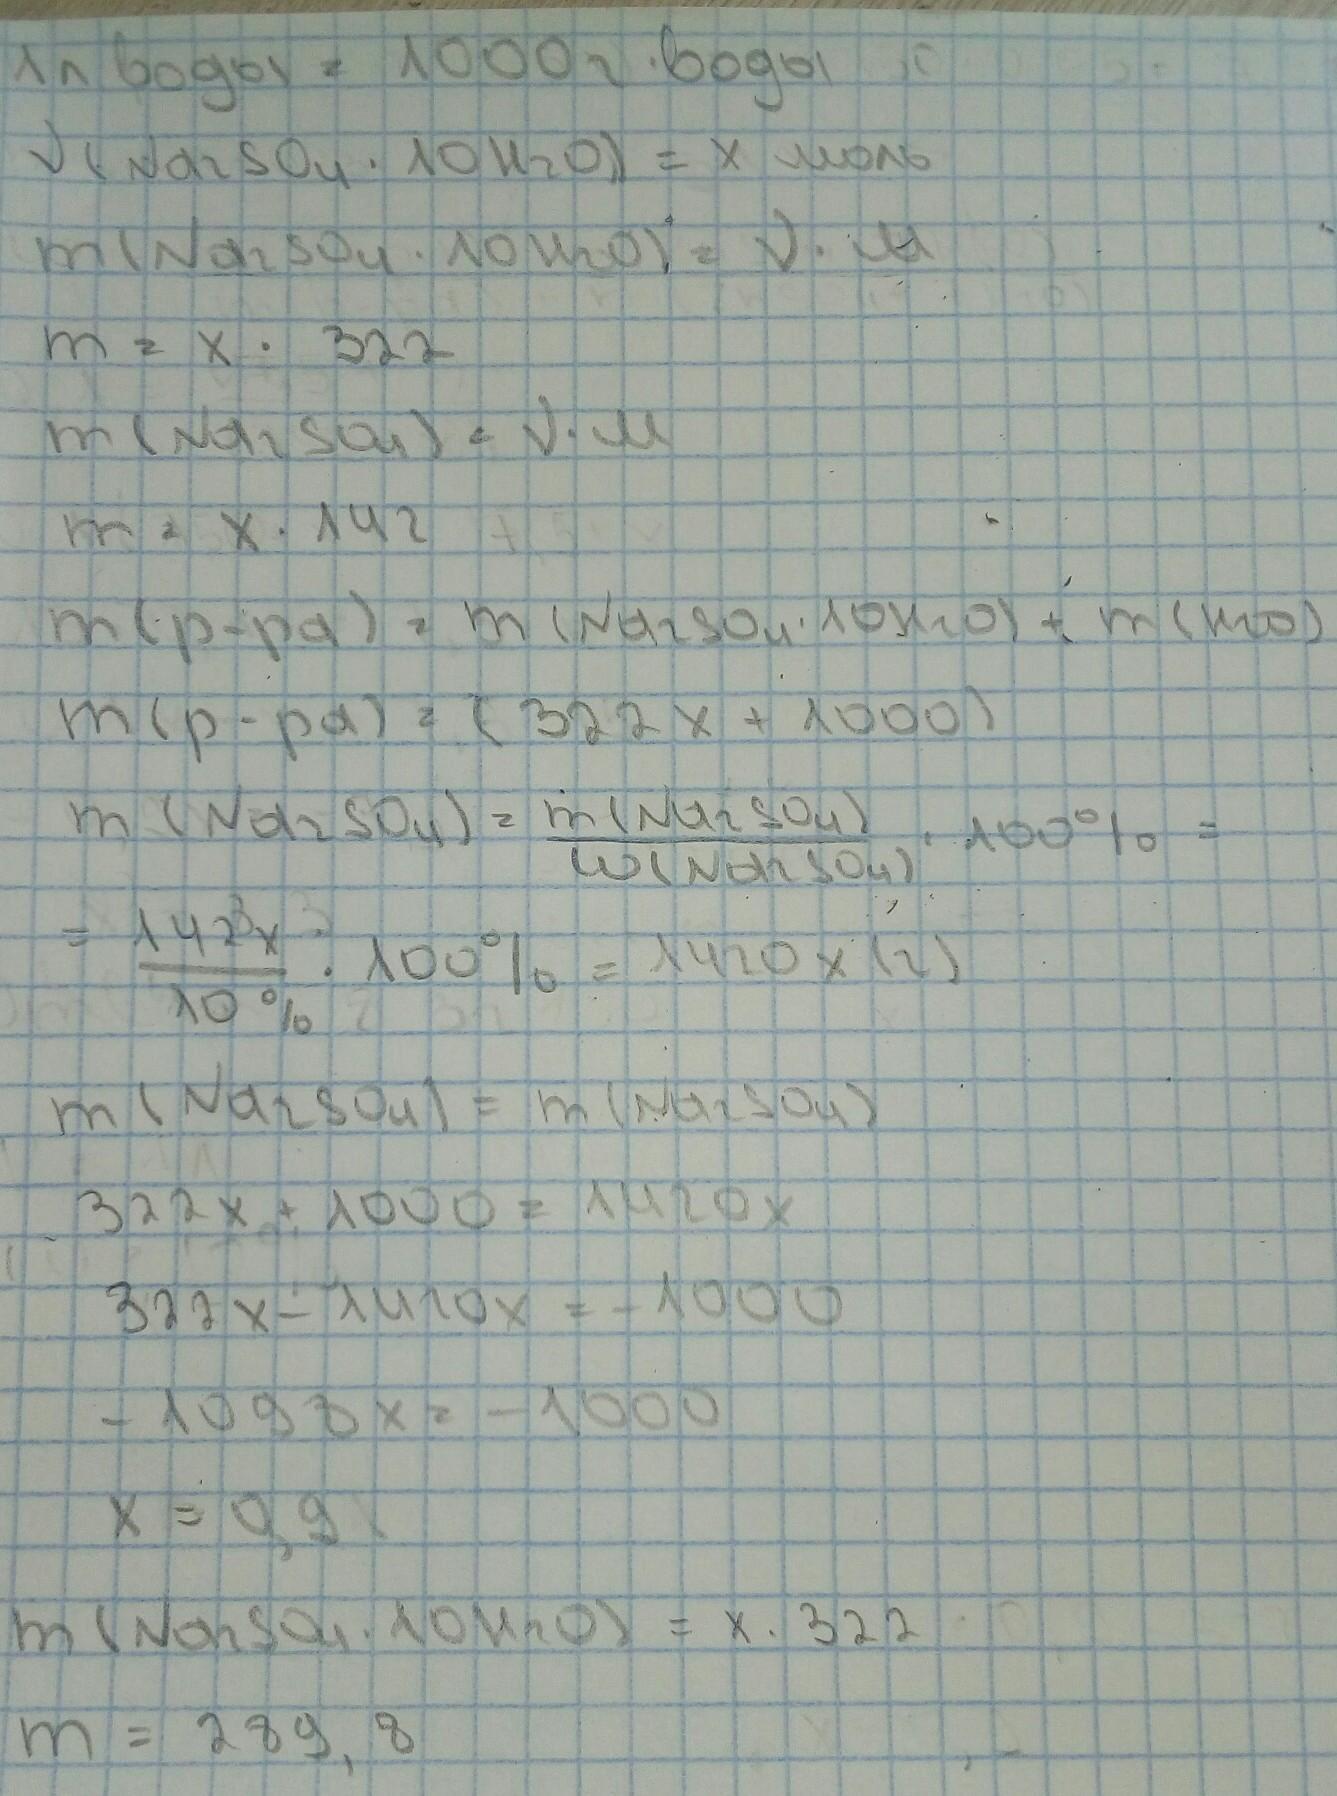 1л воды = 1000г воды
ν(Na₂SO₄ · 10H₂O) = x моль
m(Na₂SO₄ · 10H₂O) = ν · M
m = x · 322
m(Na₂SO₄) = ν · M
m = x · 142
m(р-ра) = m(Na₂SO₄ · 10H₂O) + m(H₂O)
m(р-ра) = (322x + 1000)
m(Na₂SO₄) = m(Na₂SO₄)/ω(Na₂SO₄) · 100% =
= 142x/10% · 100% = 1420x(г)
m(Na₂SO₄) = m(Na₂SO₄)
322x + 1000 = 1420x
322x - 1420x = -1000
-1098x = -1000
x = 0,9
m(Na₂SO₄ · 10H₂O) = x · 322
m = 289,8